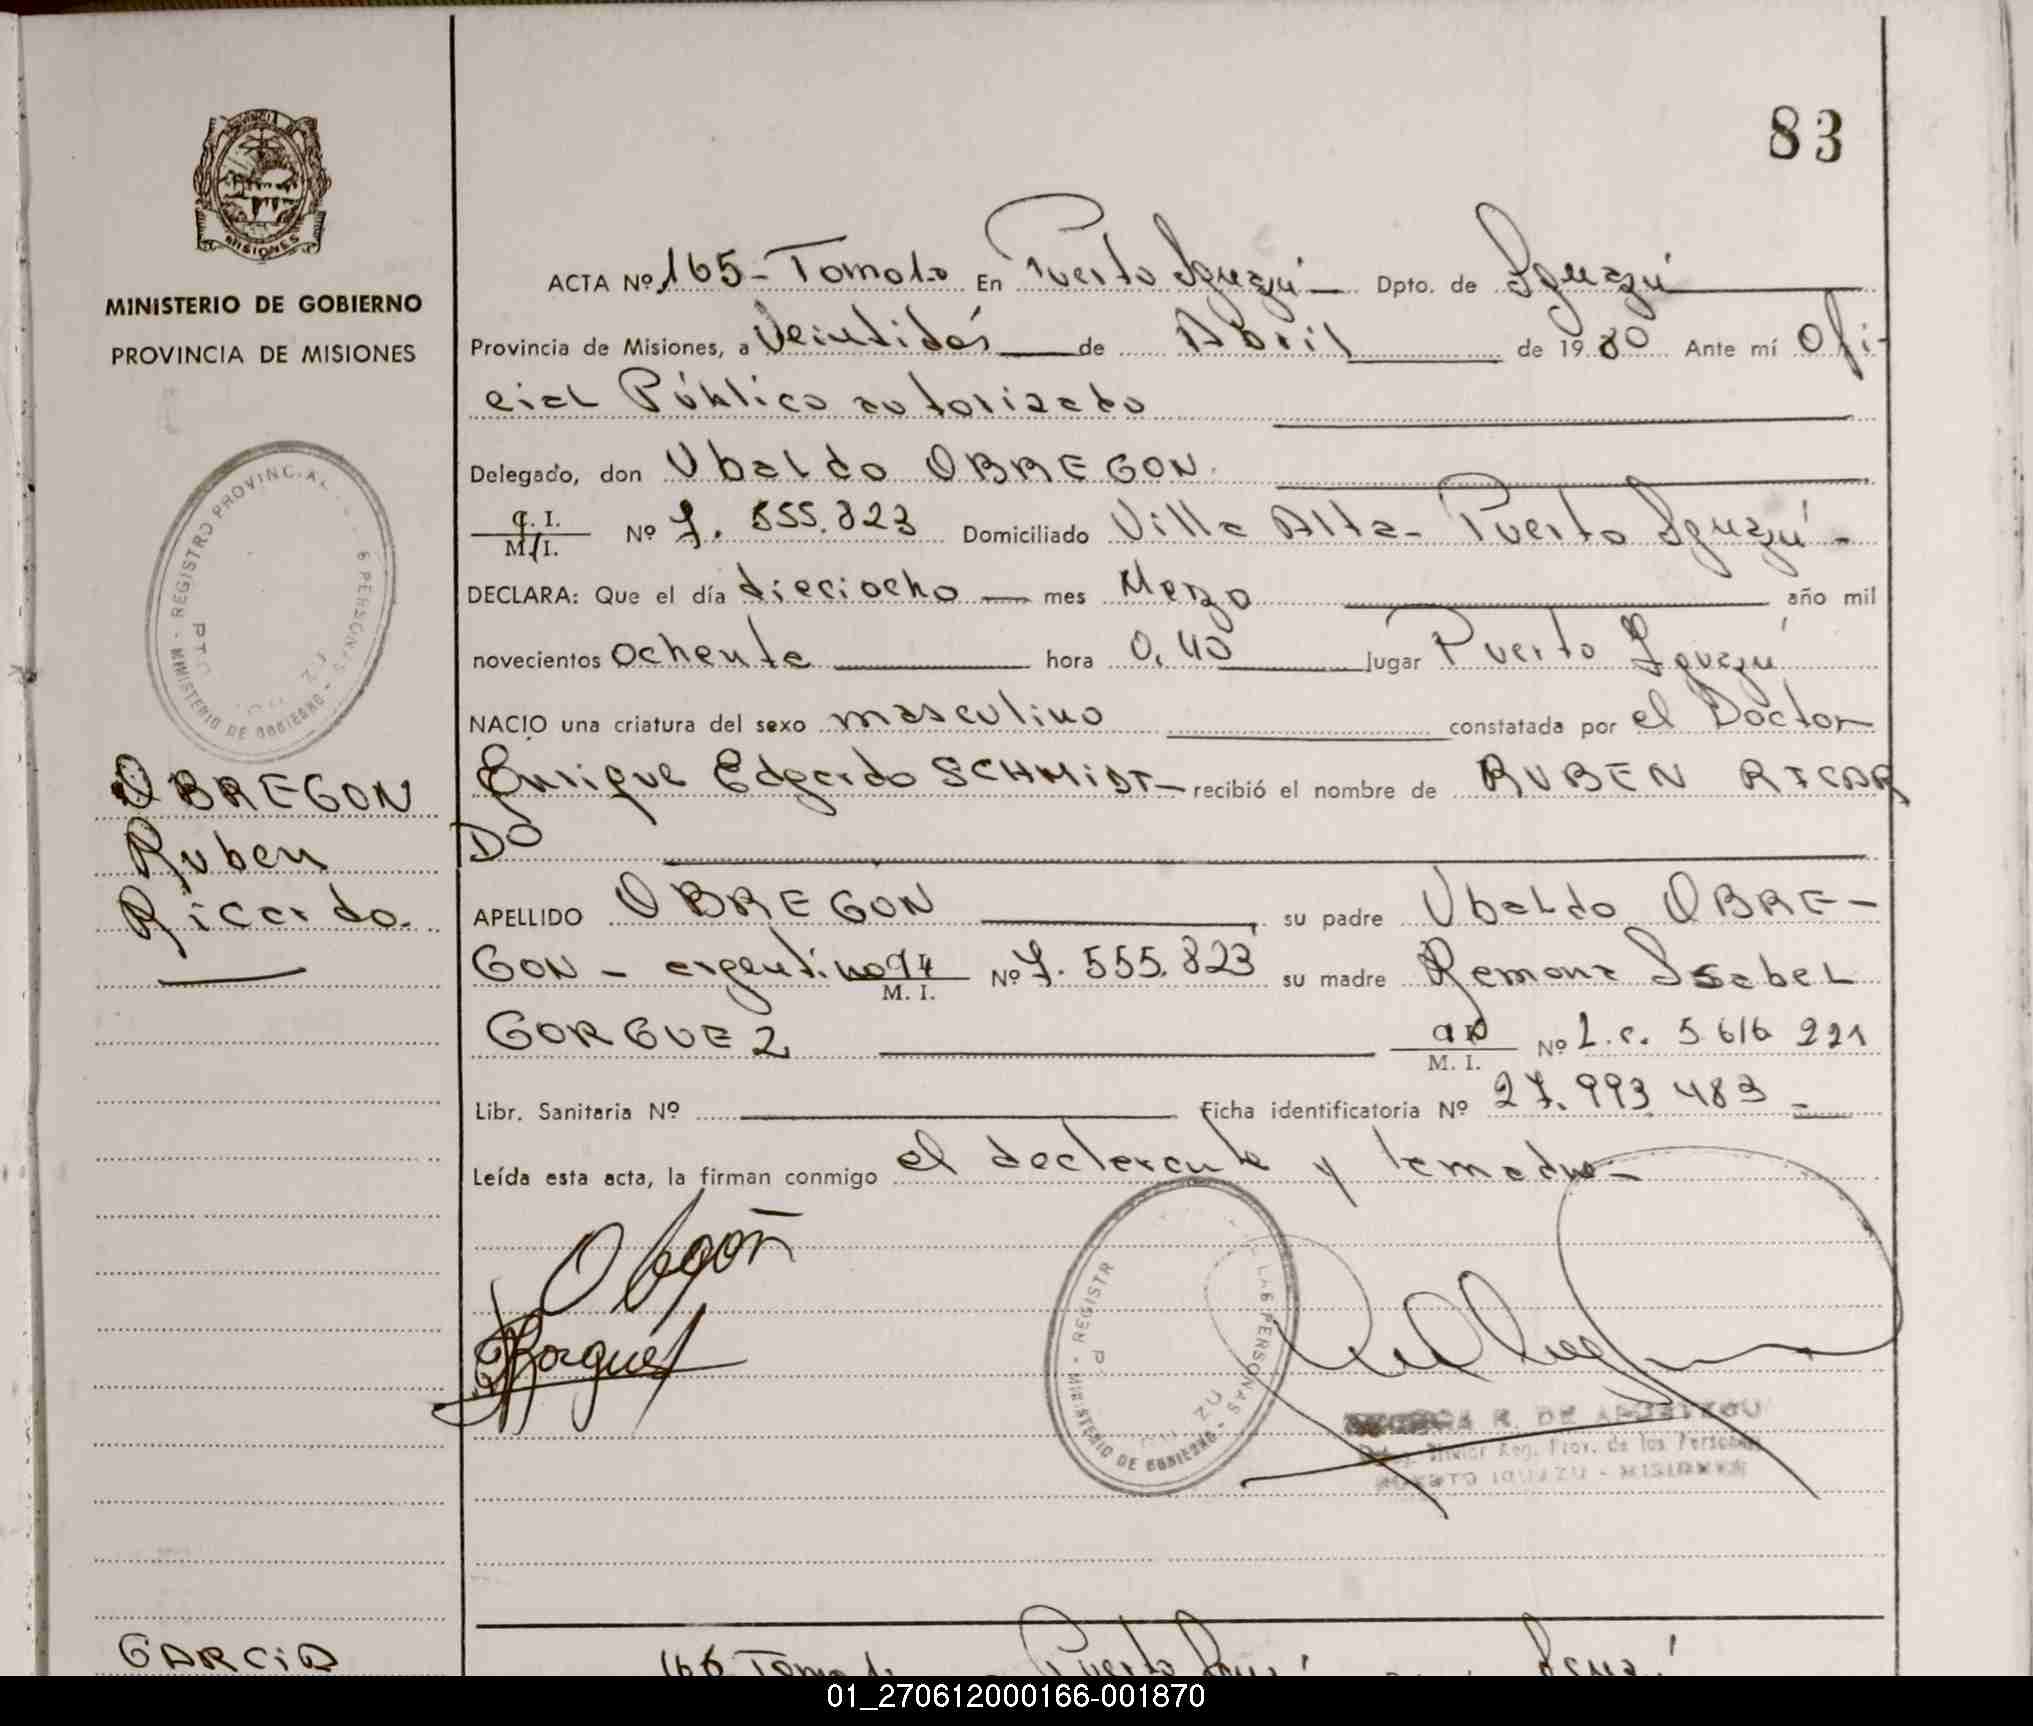 83
MINISTERIO DE GOBIERNO
PROVINCIA DE MISIONES
PROVINCIA
MISIONES
MINISTERIO DE GOBIERNO - REGISTRO PROVINCIAL PERSONAS
OBREGON
Ruben
Ricardo.
ACTA Nº 165 - Tomo 1º En Puerto Iguazú Dpto. de Iguazú
Provincia de Misiones, a Veintidós de Abril de 1980 Ante mí Ofi-
cial Público autorizado
Delegado, don Ubaldo OBREGON.
C. I.
M. I. Nº 7.555.823 Domiciliado Villa Alta - Puerto Iguazú -
DECLARA: Que el día dieciocho mes Marzo año mil
novecientos ochenta hora 0,40 lugar Puerto Iguazú
NACIO una criatura del sexo masculino constatada por el Doctor
Enrique Edgardo SCHMIDT - recibió el nombre de RUBEN RICAR
DO
APELLIDO OBREGON su padre Ubaldo OBRE-
GON - argentino M. I. Nº 7.555.823 su madre Ramona Isabel
GORGUEZ M. I. Nº L.c. 5 616 221
Libr. Sanitaria Nº Ficha identificatoria Nº 27.993 483 -
Leída esta acta, la firman conmigo el declarante y la madre -
Obregón
MINISTERIO DE GOBIERNO - REGISTR LAS PERSONAS
R. DE
Reg. Prov. de las Personas
PUERTO IGUAZU - MISIONES
GARCIA
166 Tomo Puerto Iguazú Iguazú
01_270612000166-001870